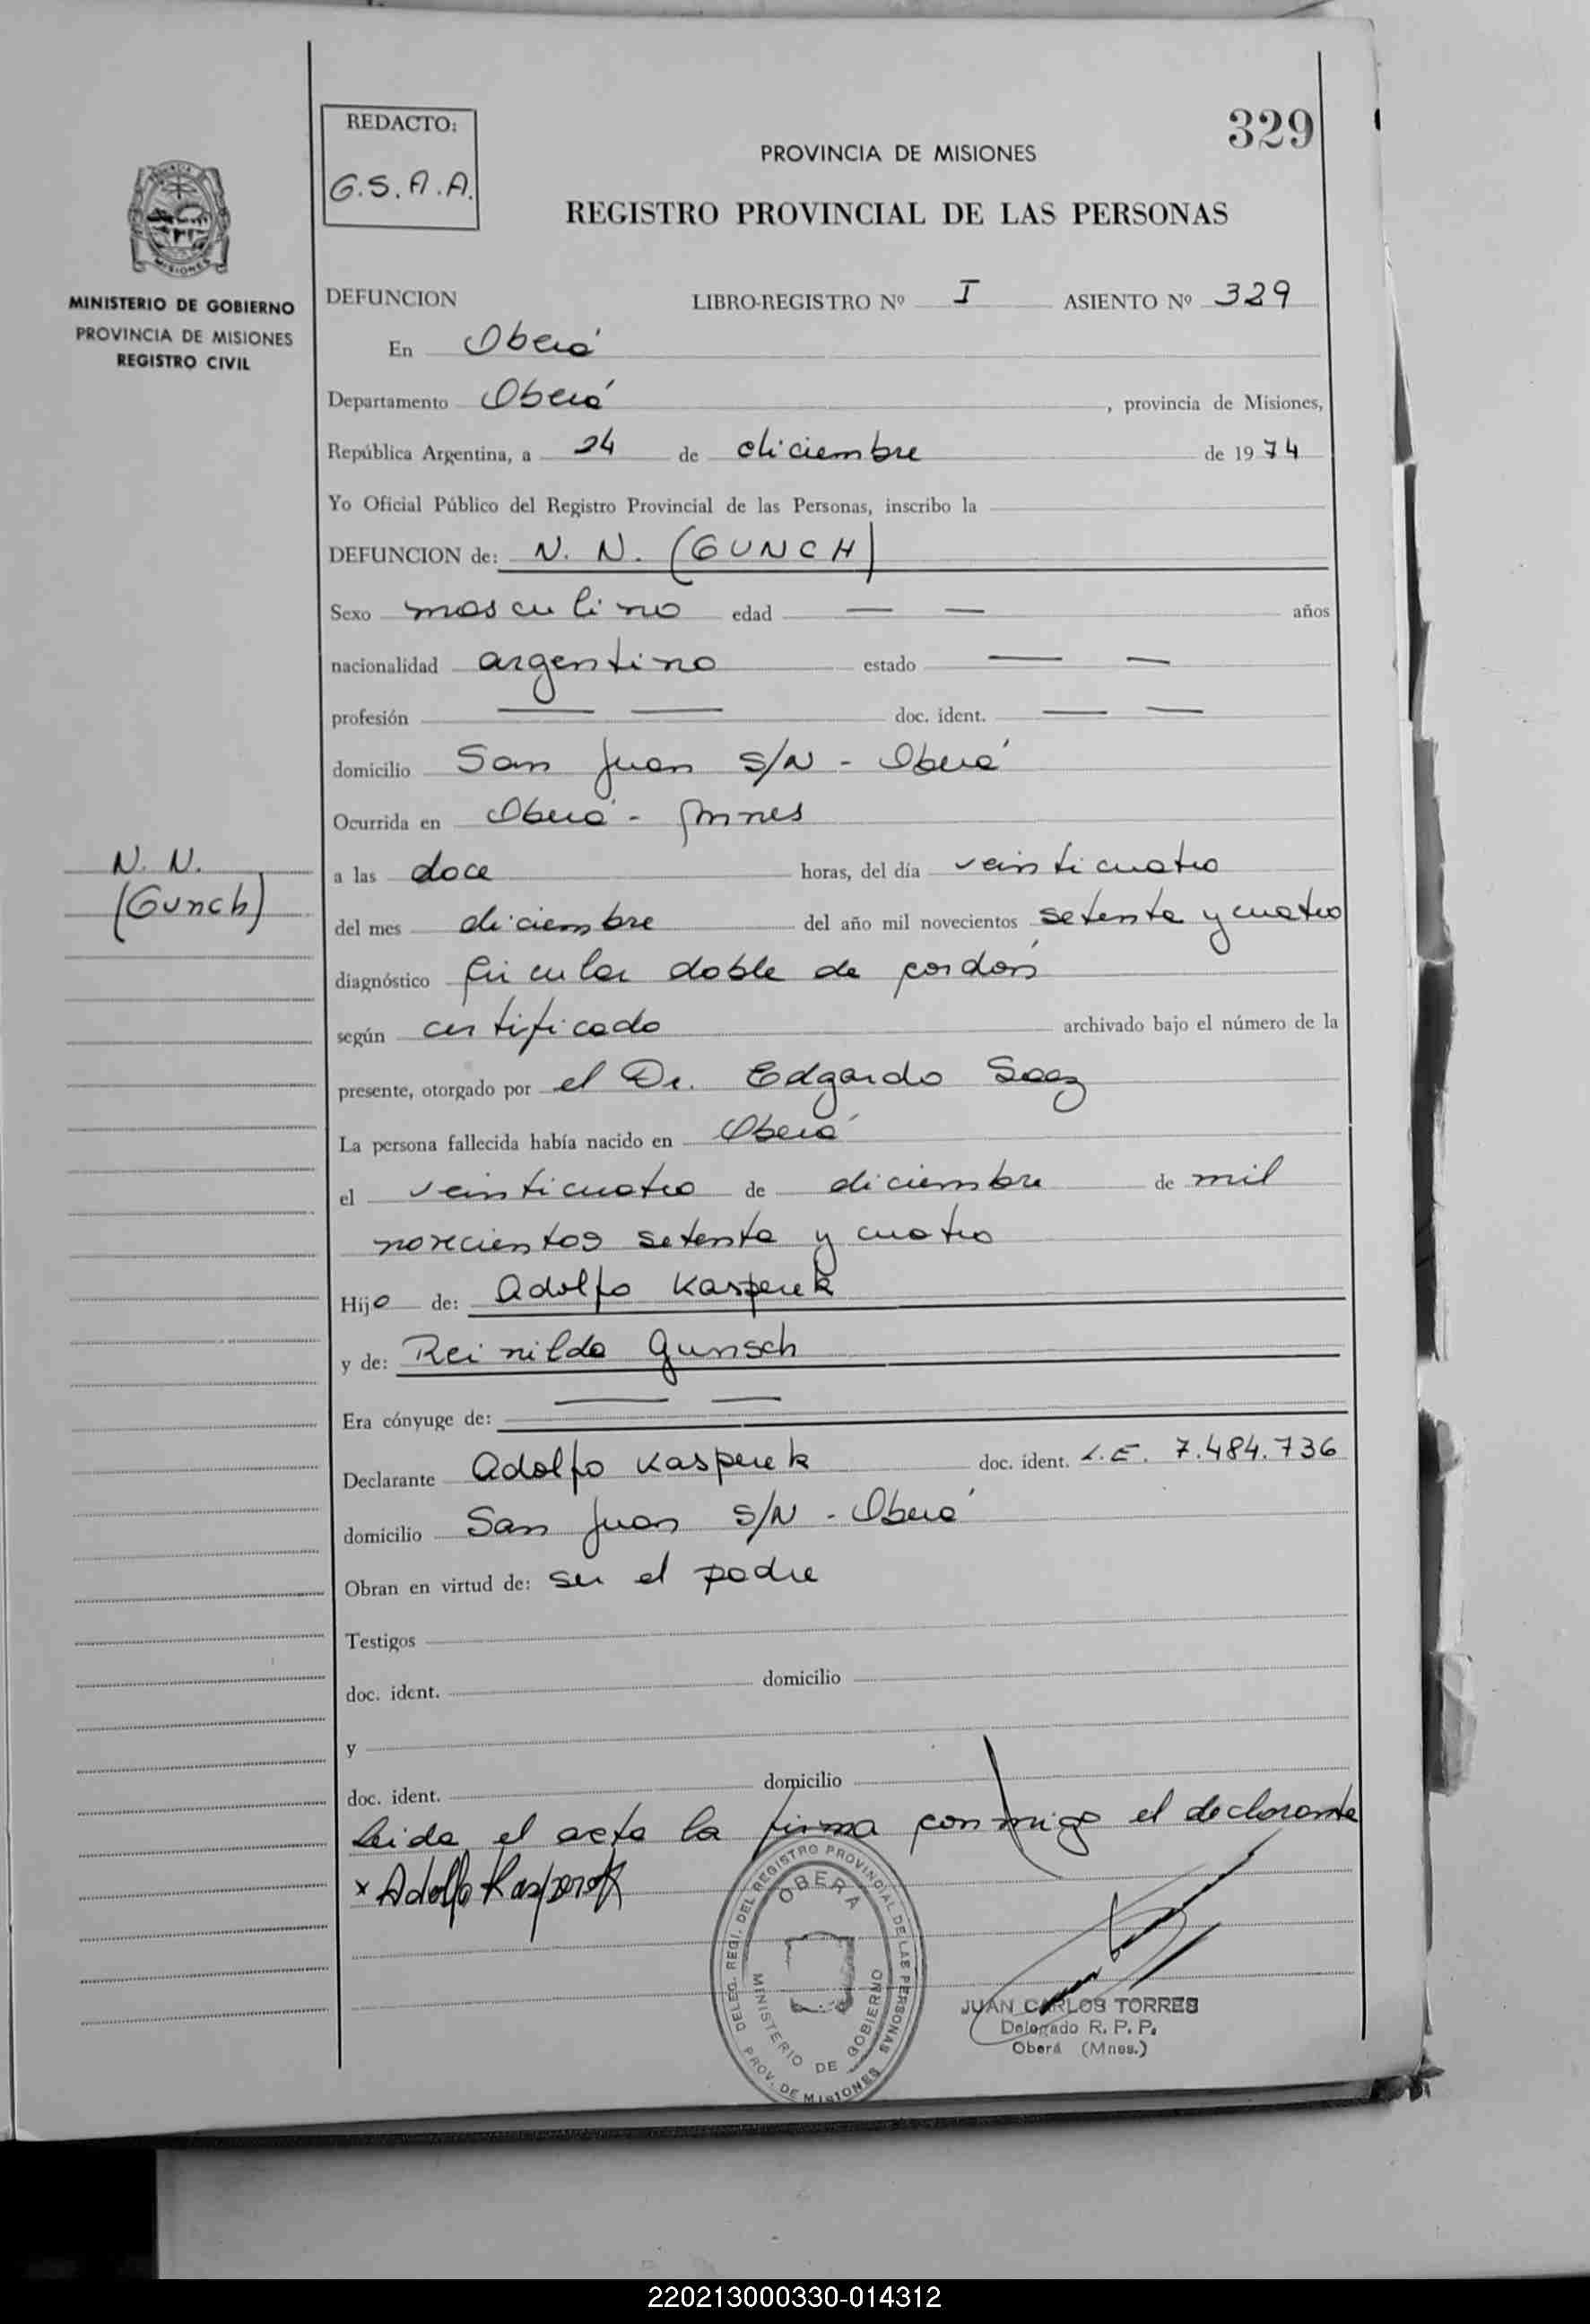 329
REDACTO:
G.S.A.A.
PROVINCIA DE MISIONES
REGISTRO PROVINCIAL DE LAS PERSONAS
MISIONES
MINISTERIO DE GOBIERNO
PROVINCIA DE MISIONES
REGISTRO CIVIL
DEFUNCION LIBRO-REGISTRO Nº I ASIENTO Nº 329
En Oberá
Departamento Oberá, provincia de Misiones,
República Argentina, a 24 de diciembre de 1974
Yo Oficial Público del Registro Provincial de las Personas, inscribo la
DEFUNCION de: N. N. (GUNCH)
Sexo masculino edad — — años
nacionalidad argentino estado — —
profesión — — doc. ident. — —
domicilio San Juan S/N - Oberá
Ocurrida en Oberá - Mnes
N. N.
(Gunch)
a las doce horas, del día veinticuatro
del mes diciembre del año mil novecientos setenta y cuatro
diagnóstico Circular doble de cordón
según certificado archivado bajo el número de la
presente, otorgado por el Dr. Edgardo Saez
La persona fallecida había nacido en Oberá
el veinticuatro de diciembre de mil
novecientos setenta y cuatro
Hijo de: Adolfo Kasperek
y de: Reinilda Gunsch
Era cónyuge de: — —
Declarante Adolfo Kasperek doc. ident. L.E. 7.484.736
domicilio San Juan S/N - Oberá
Obran en virtud de: ser el padre
Testigos
doc. ident. domicilio
y
doc. ident. domicilio
Leida el acta la firma conmigo el declarante
x Adolfo Kasperek
DELEG. REGI. DEL REGISTRO PROVINCIAL DE LAS PERSONAS
OBERA
MINISTERIO DE GOBIERNO
PROV. DE MISIONES
JUAN CARLOS TORRES
Delegado R. P. P.
Oberá (Mnes.)
220213000330-014312